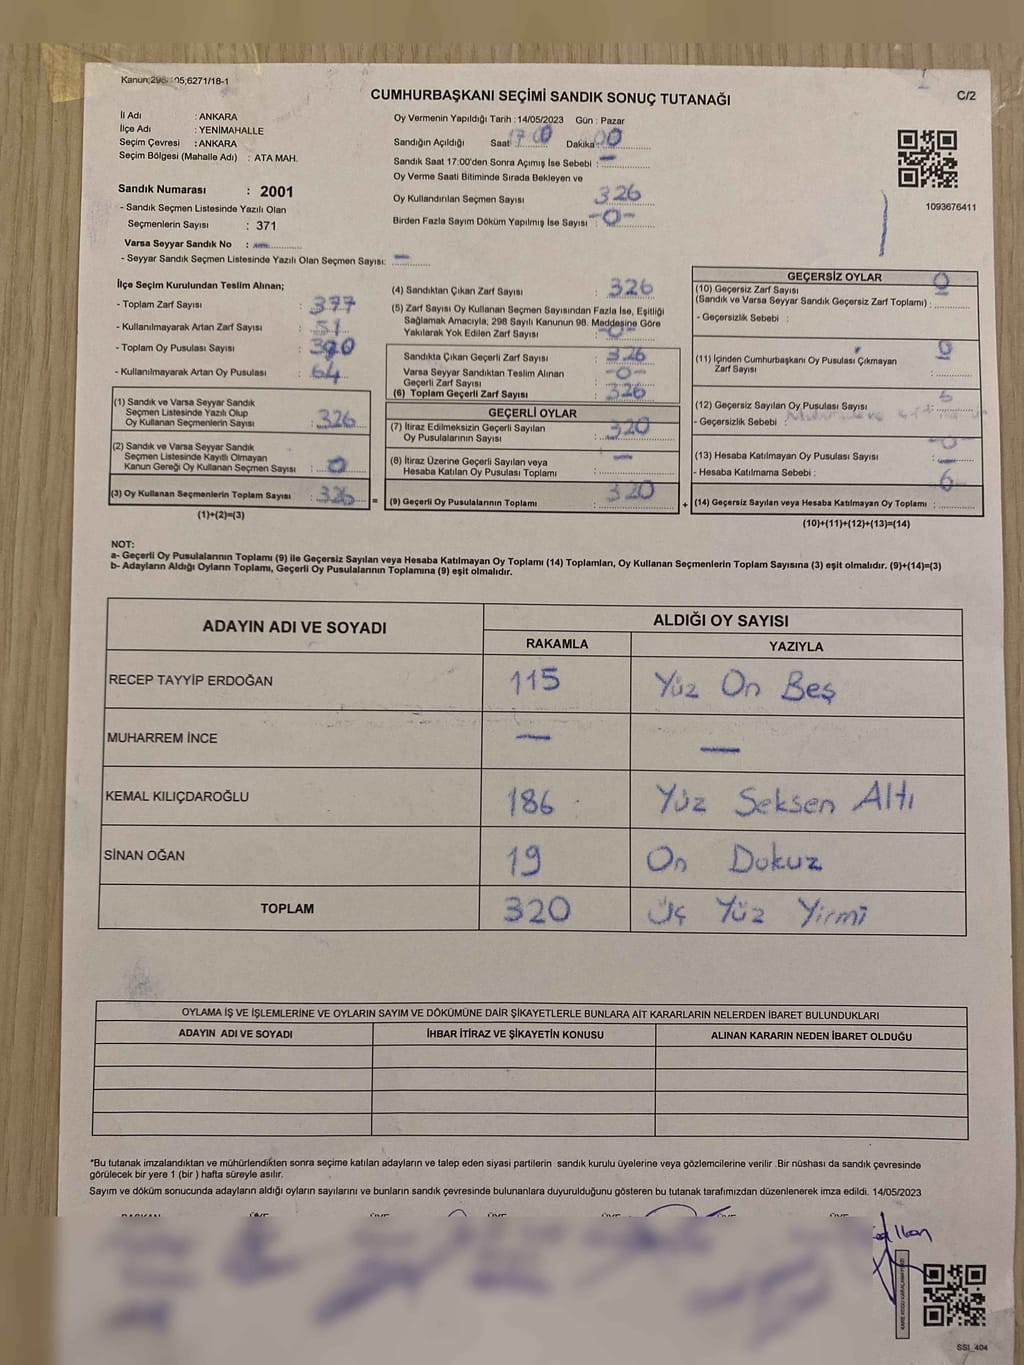 Kanun;298/ 05;6271/18-1
CUMHURBAŞKANI SEÇİMİ SANDIK SONUÇ TUTANAĞI
C/2
İl Adı : ANKARA
İlçe Adı : YENİMAHALLE
Seçim Çevresi : ANKARA
Seçim Bölgesi (Mahalle Adı) : ATA MAH.
Oy Vermenin Yapıldığı Tarih : 14/05/2023 Gün : Pazar
Sandığın Açıldığı Saat 17 00 Dakika 00
Sandık Saat 17:00'den Sonra Açımış İse Sebebi : —
Oy Verme Saati Bitiminde Sırada Bekleyen ve
Oy Kullandırılan Seçmen Sayısı 326
Birden Fazla Sayım Döküm Yapılmış İse Sayısı -0-
1093676411
Sandık Numarası : 2001
- Sandık Seçmen Listesinde Yazılı Olan
Seçmenlerin Sayısı : 371
Varsa Seyyar Sandık No : —
- Seyyar Sandık Seçmen Listesinde Yazılı Olan Seçmen Sayısı: —
İlçe Seçim Kurulundan Teslim Alınan;
- Toplam Zarf Sayısı : 377
- Kullanılmayarak Artan Zarf Sayısı : 51
- Toplam Oy Pusulası Sayısı : 390
- Kullanılmayarak Artan Oy Pusulası : 64
(1) Sandık ve Varsa Seyyar Sandık
Seçmen Listesinde Yazılı Olup
Oy Kullanan Seçmenlerin Sayısı : 326
(2) Sandık ve Varsa Seyyar Sandık
Seçmen Listesinde Kayıtlı Olmayan
Kanun Gereği Oy Kullanan Seçmen Sayısı : 0
(3) Oy Kullanan Seçmenlerin Toplam Sayısı : 326
(1)+(2)=(3)
=
(4) Sandıktan Çıkan Zarf Sayısı : 326
(5) Zarf Sayısı Oy Kullanan Seçmen Sayısından Fazla İse, Eşitliği
Sağlamak Amacıyla; 298 Sayılı Kanunun 98. Maddesine Göre
Yakılarak Yok Edilen Zarf Sayısı : -0-
Sandıkta Çıkan Geçerli Zarf Sayısı : 326
Varsa Seyyar Sandıktan Teslim Alınan
Geçerli Zarf Sayısı : -0-
(6) Toplam Geçerli Zarf Sayısı : 326
GEÇERLİ OYLAR
(7) İtiraz Edilmeksizin Geçerli Sayılan
Oy Pusulalarının Sayısı : 320
(8) İtiraz Üzerine Geçerli Sayılan veya
Hesaba Katılan Oy Pusulası Toplamı : —
(9) Geçerli Oy Pusulalarının Toplamı : 320
+
GEÇERSİZ OYLAR
(10) Geçersiz Zarf Sayısı 0
(Sandık ve Varsa Seyyar Sandık Geçersiz Zarf Toplamı) :
- Geçersizlik Sebebi :
(11) İçinden Cumhurbaşkanı Oy Pusulası Çıkmayan 0
Zarf Sayısı :
(12) Geçersiz Sayılan Oy Pusulası Sayısı :
- Geçersizlik Sebebi :
-0-
(13) Hesaba Katılmayan Oy Pusulası Sayısı : —
- Hesaba Katılmama Sebebi :
6
(14) Geçersiz Sayılan veya Hesaba Katılmayan Oy Toplamı :
(10)+(11)+(12)+(13)=(14)
NOT:
a- Geçerli Oy Pusulalarının Toplamı (9) ile Geçersiz Sayılan veya Hesaba Katılmayan Oy Toplamı (14) Toplamları, Oy Kullanan Seçmenlerin Toplam Sayısına (3) eşit olmalıdır. (9)+(14)=(3)
b- Adayların Aldığı Oyların Toplamı, Geçerli Oy Pusulalarının Toplamına (9) eşit olmalıdır.
ADAYIN ADI VE SOYADI
ALDIĞI OY SAYISI
RAKAMLA YAZIYLA
RECEP TAYYİP ERDOĞAN 115 Yüz On Beş
MUHARREM İNCE — —
KEMAL KILIÇDAROĞLU 186 Yüz Seksen Altı
SİNAN OĞAN 19 On Dokuz
TOPLAM 320 Üç Yüz Yirmi
OYLAMA İŞ VE İŞLEMLERİNE VE OYLARIN SAYIM VE DÖKÜMÜNE DAİR ŞİKAYETLERLE BUNLARA AİT KARARLARIN NELERDEN İBARET BULUNDUKLARI
ADAYIN ADI VE SOYADI İHBAR İTİRAZ VE ŞİKAYETİN KONUSU ALINAN KARARIN NEDEN İBARET OLDUĞU
*Bu tutanak imzalandıktan ve mühürlendikten sonra seçime katılan adayların ve talep eden siyasi partilerin sandık kurulu üyelerine veya gözlemcilerine verilir .Bir nüshası da sandık çevresinde
görülecek bir yere 1 (bir ) hafta süreyle asılır.
Sayım ve döküm sonucunda adayların aldığı oyların sayılarını ve bunların sandık çevresinde bulunanlara duyurulduğunu gösteren bu tutanak tarafımızdan düzenlenerek imza edildi. 14/05/2023
SSI_404